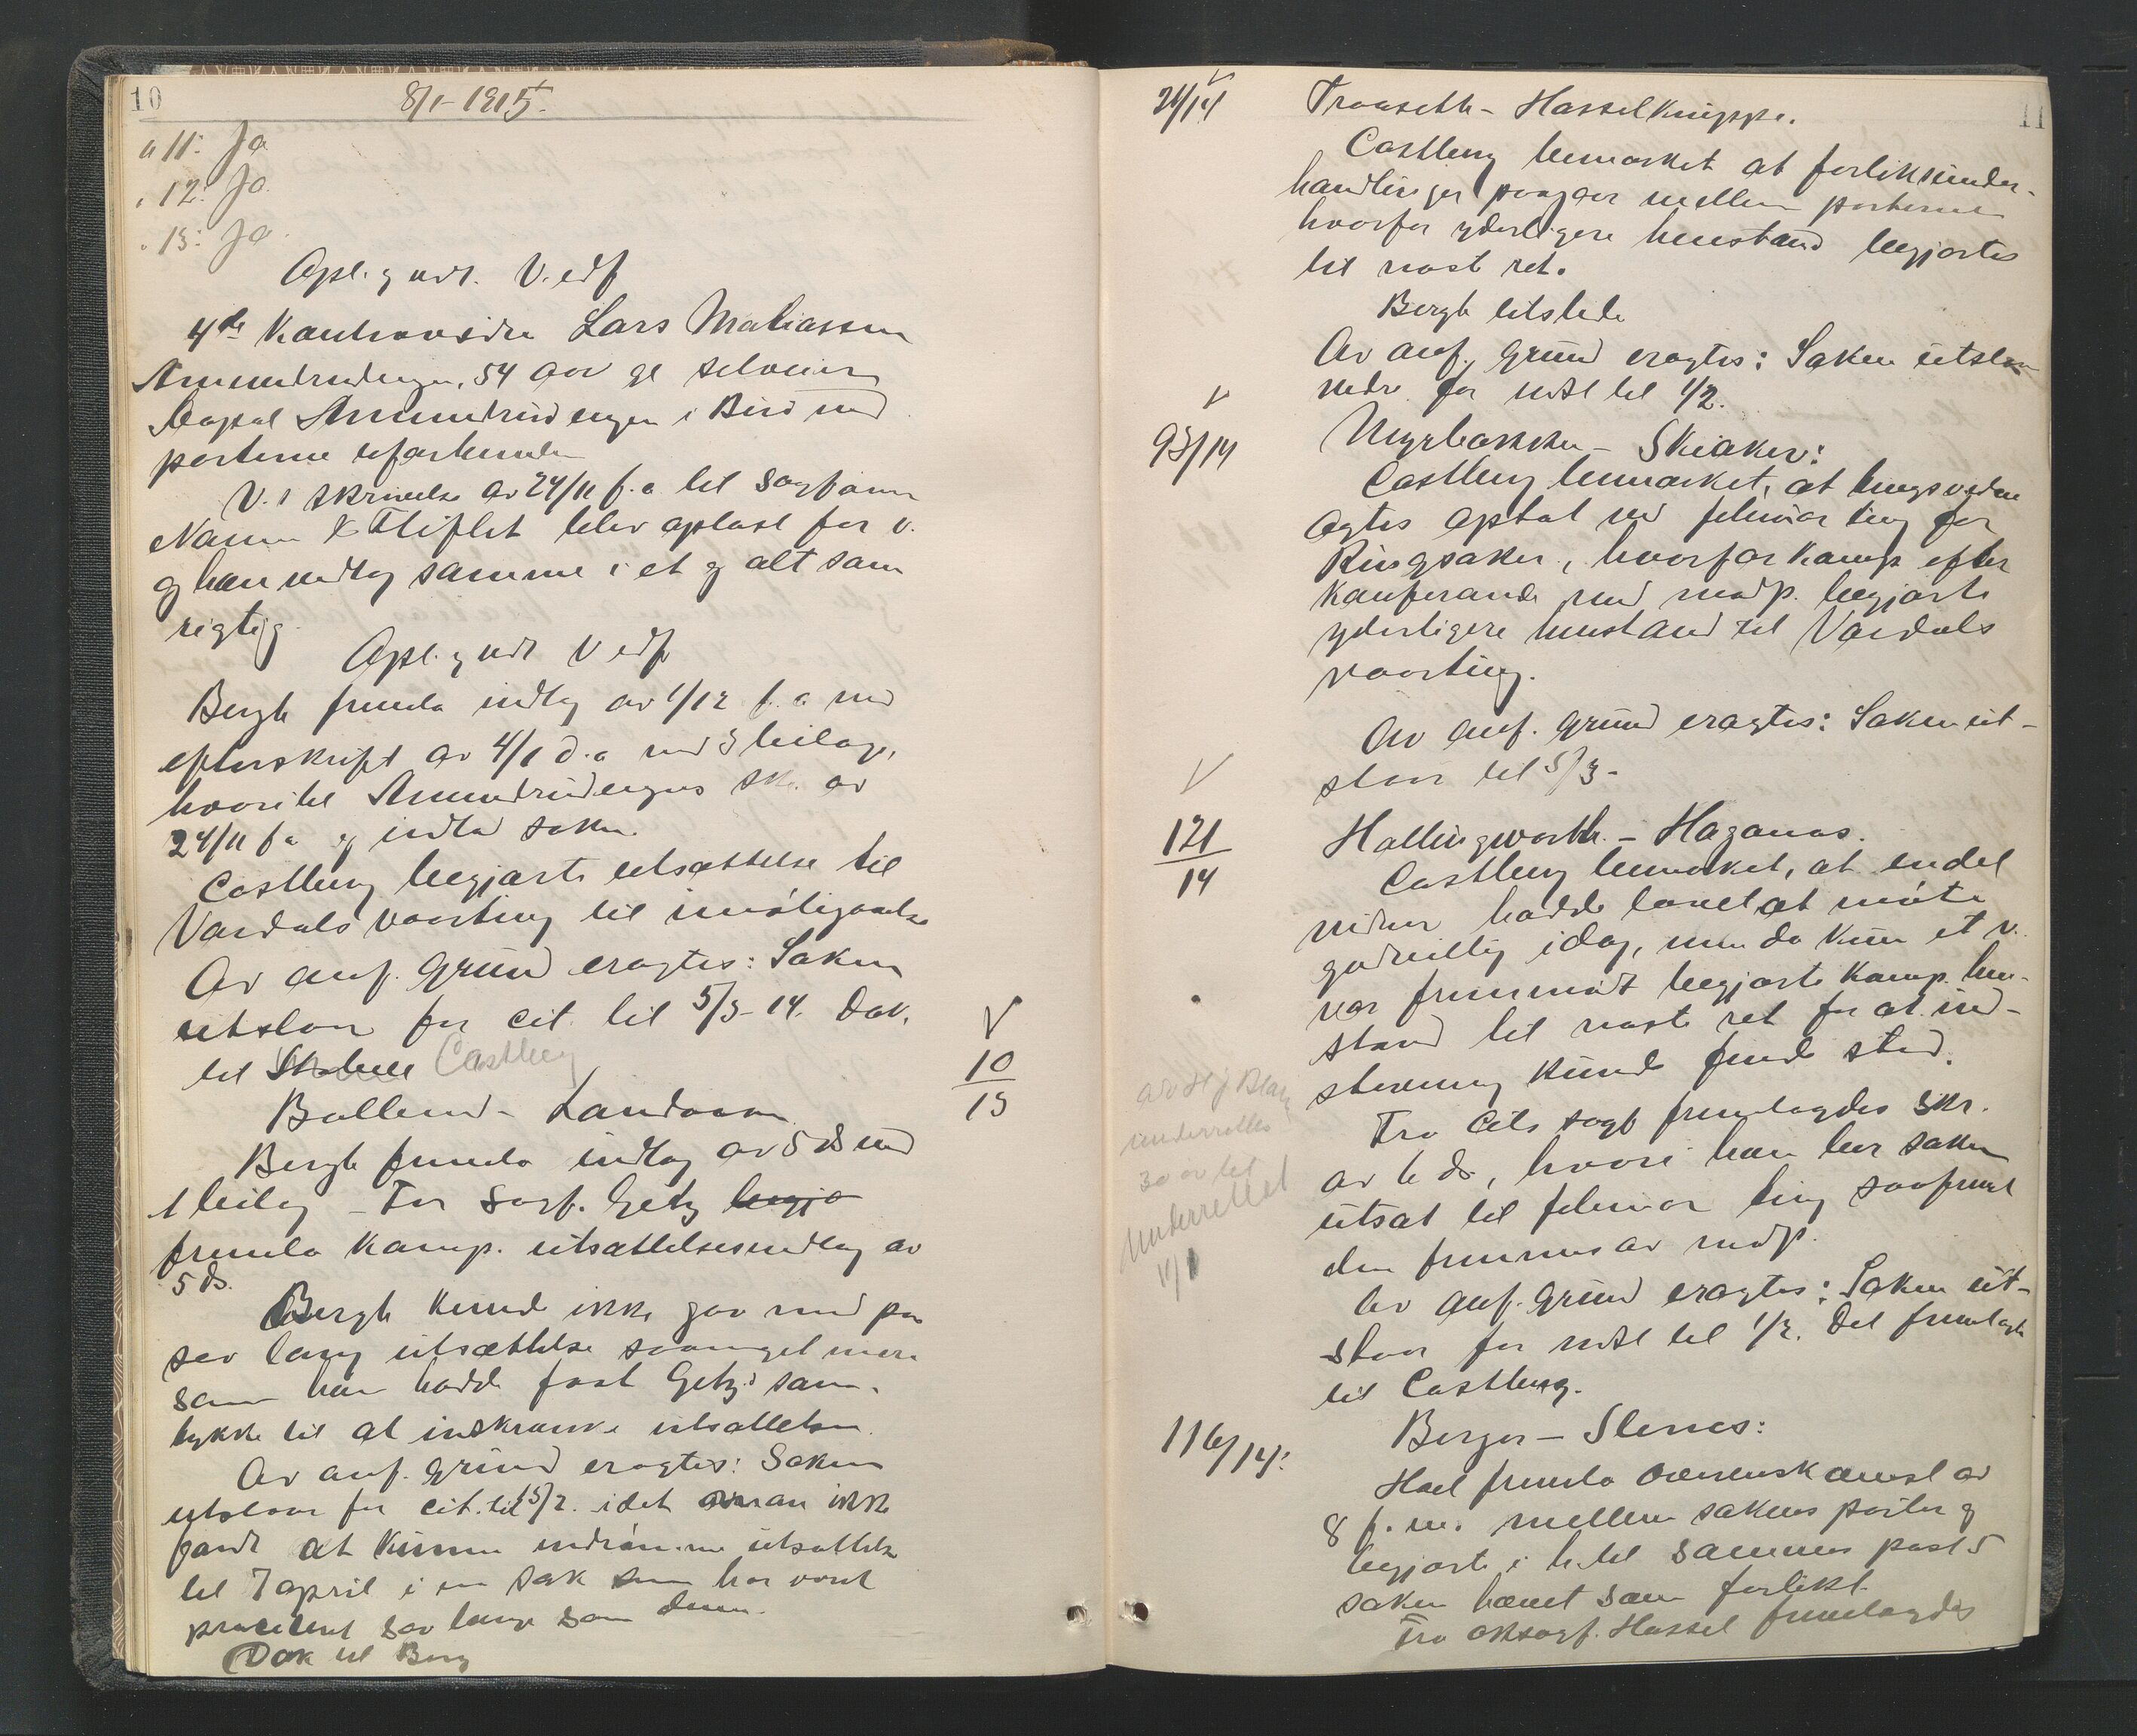 10
8/1-1915.
" 11: Ja
" 12: Ja.
" 13: Ja.
Opl. g vedt. V. edf
4de Kontravidne Lars Matiassen
Amundrudengen, 54 aar gl selveier
bopæl Amundrudengen i Biri med
parterne ubeslegtet
V.s skrivelse av 24/11 f.a til sagfører
Fliflet blev oplæst for v.
og han vedtog samme i et og alt som
rigtig.
Opl. g vedt V edf
Bergh fremla indlæg av 1/12 f.a med
efterskrift av 4/1 d.a med 3 bilage,
hvoriblt Amundrudengens skr. av
24/11 f a og indlod saken.
Castberg begjærte utsættelse til
Vardals vaarting til imøtegaaelse
Av anf. grund eragtes: Saken
utstaar for cit. til 5/3-14. Dok.
til Castberg
V
10
15
Bollerud - Landaasen
Bergh fremla indlæg av 5 ds med
1 bilag - For sagf. Getz begjæ
fremla komp. utsættelsesindlæg av
5 ds.
Bergh kunde ikke gaa med paa
saa lang utsættelse saameget mere
som han hadde faat Getz's sam-
tykke til at indskrænke utsættelsen.
Av anf. grund eragtes: Saken
utstaar for cit. til 5/2. idet man ikke
fandt at kunne indrømme utsættelse
til 7 april i en sak som har været
procedert saa længe som denne.
Dok til Berg
11
V
26/14
Traaseth - Hasselknippe.
Castberg bemærket at forliksunder-
handlinger paagaar mellem parterne
hvorfor yderligere henstand begjærtes
til næst ret.
Bergh tilstede
Av anf. grund eragtes: Saken utstaar
vedr. for indst til 1/2.
V
93/14
Myrbakken - Skiaker:
Castberg bemærket, at tingsvidne
agtes optat ved februar ting for
Ringsaker, hvorfor komp. efter
konferance med modp. begjærte
yderligere henstand til Vardals
vaarting.
Av anf. grund eragtes: Saken ut-
staar til 5/3-
V
121
14
Hollingworth - Høganæs.
Castberg bemærket, at endel
vidner hadde lovet at møte
godvillig idag, men da kun et v.
var fremmøt begjærte komp. hen-
stand til næste ret for at ind-
stevning kunde finde sted.
Fra cits sagf fremlagdes skr.
av 6 ds, hvori han ber saken
utsat til februar ting saafremt
den fremmes av modp.
Av anf. grund eragtes: Saken ut-
staar for indst til 1/2. Det fremlagte
til Castberg.
underrettes
Underrettet
11/1
116/14:
Berger - Slenes:
Hoel fremla overenskomst av
8 f.m. mellem sakens parter og
begjærte i h.til sammes post 5
saken hævet som forlikt.
Fra oksagf. Hassel fremlagdes